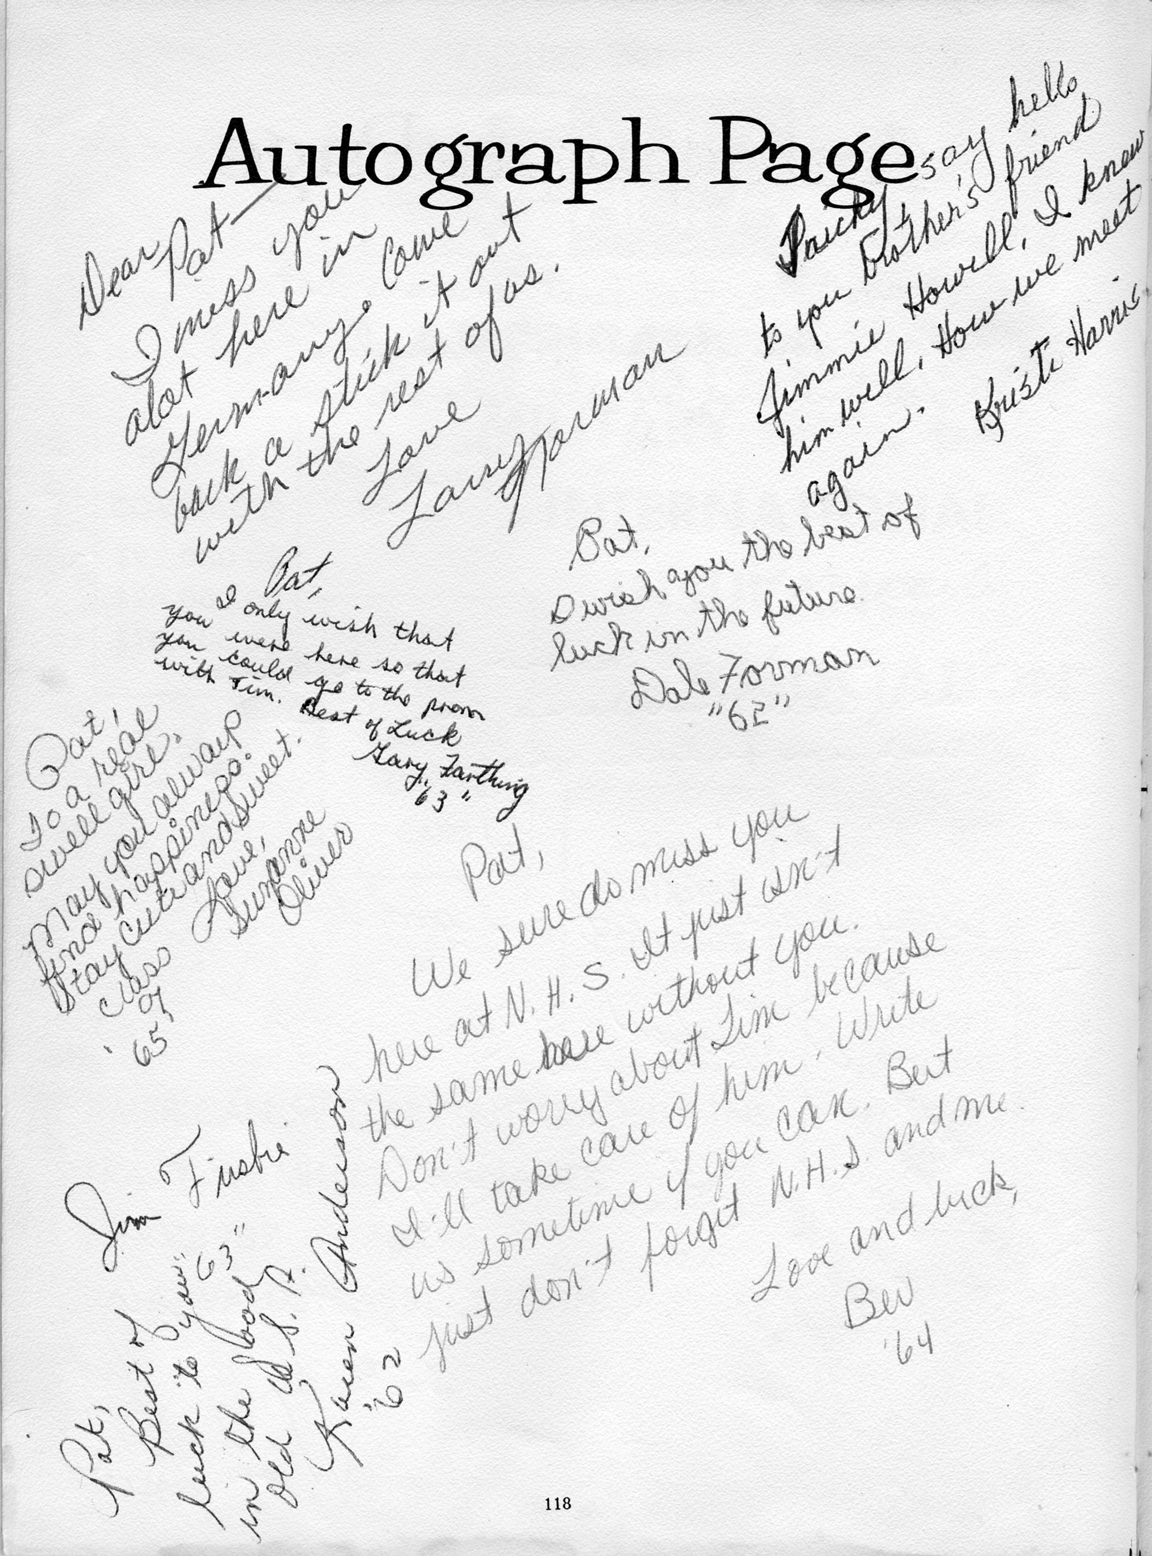 Autograph Page
Dear Pat—
I miss you
alot here in
Germany. Come
back a stick it out
with the rest of us.
Love
Larry Norman
say hello
to you brother's friend
Jimmie Howell, I knew
him well, How we meet
again.
Kristi Harris
Pat,
I wish you the best of
luck in the future.
Dale Forman
"62"
Pat,
I only wish that
you were here so that
you could go to the prom
with Tim. Best of Luck
Gary Farthing
"63"
Pat,
To a real
swell girl.
May you always
find happiness.
Stay cute and sweet.
Love,
Suzanne
Oliver
class
of
'65'
Pat,
We sure do miss you
here at N.H.S. It just isn't
the same here without you.
Don't worry about Jim because
I'll take care of him. Write
us sometime if you can. But
just don't forget N.H.S. and me.
Love and luck,
Bev
'64
Jim
"63"
Pat,
Best of
luck to you
in the good
old U.S.A.
Karen Anderson
'62
118